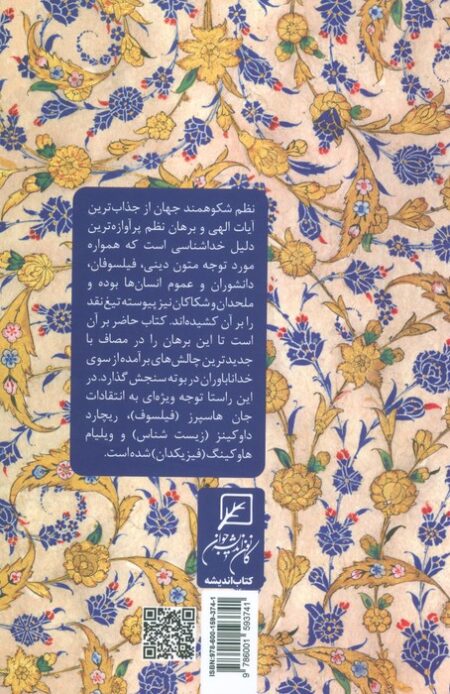 نظم شکوهمند جهان از جذاب‌ترین
آیات الهی و برهان نظم پرآوازه‌ترین
دلیل خداشناسی است که همواره
مورد توجه متون دینی، فیلسوفان،
دانشوران و عموم انسان‌ها بوده و
ملحدان و شکاکان نیز پیوسته تیغ نقد
را بر آن کشیده‌اند. کتاب حاضر بر آن
است تا این برهان را در مصاف با
جدیدترین چالش‌های برآمده از سوی
خداناباوران در بوته سنجش گذارد. در
این راستا توجه ویژه‌ای به انتقادات
جان هاسپرز (فیلسوف)، ریچارد
داوکینز (زیست شناس) و ویلیام
هاوکینگ (فیزیکدان) شده است.
کانون اندیشه جوان
کتاب اندیشه
ISBN: 978-600-159-374-1
9 786001 593741